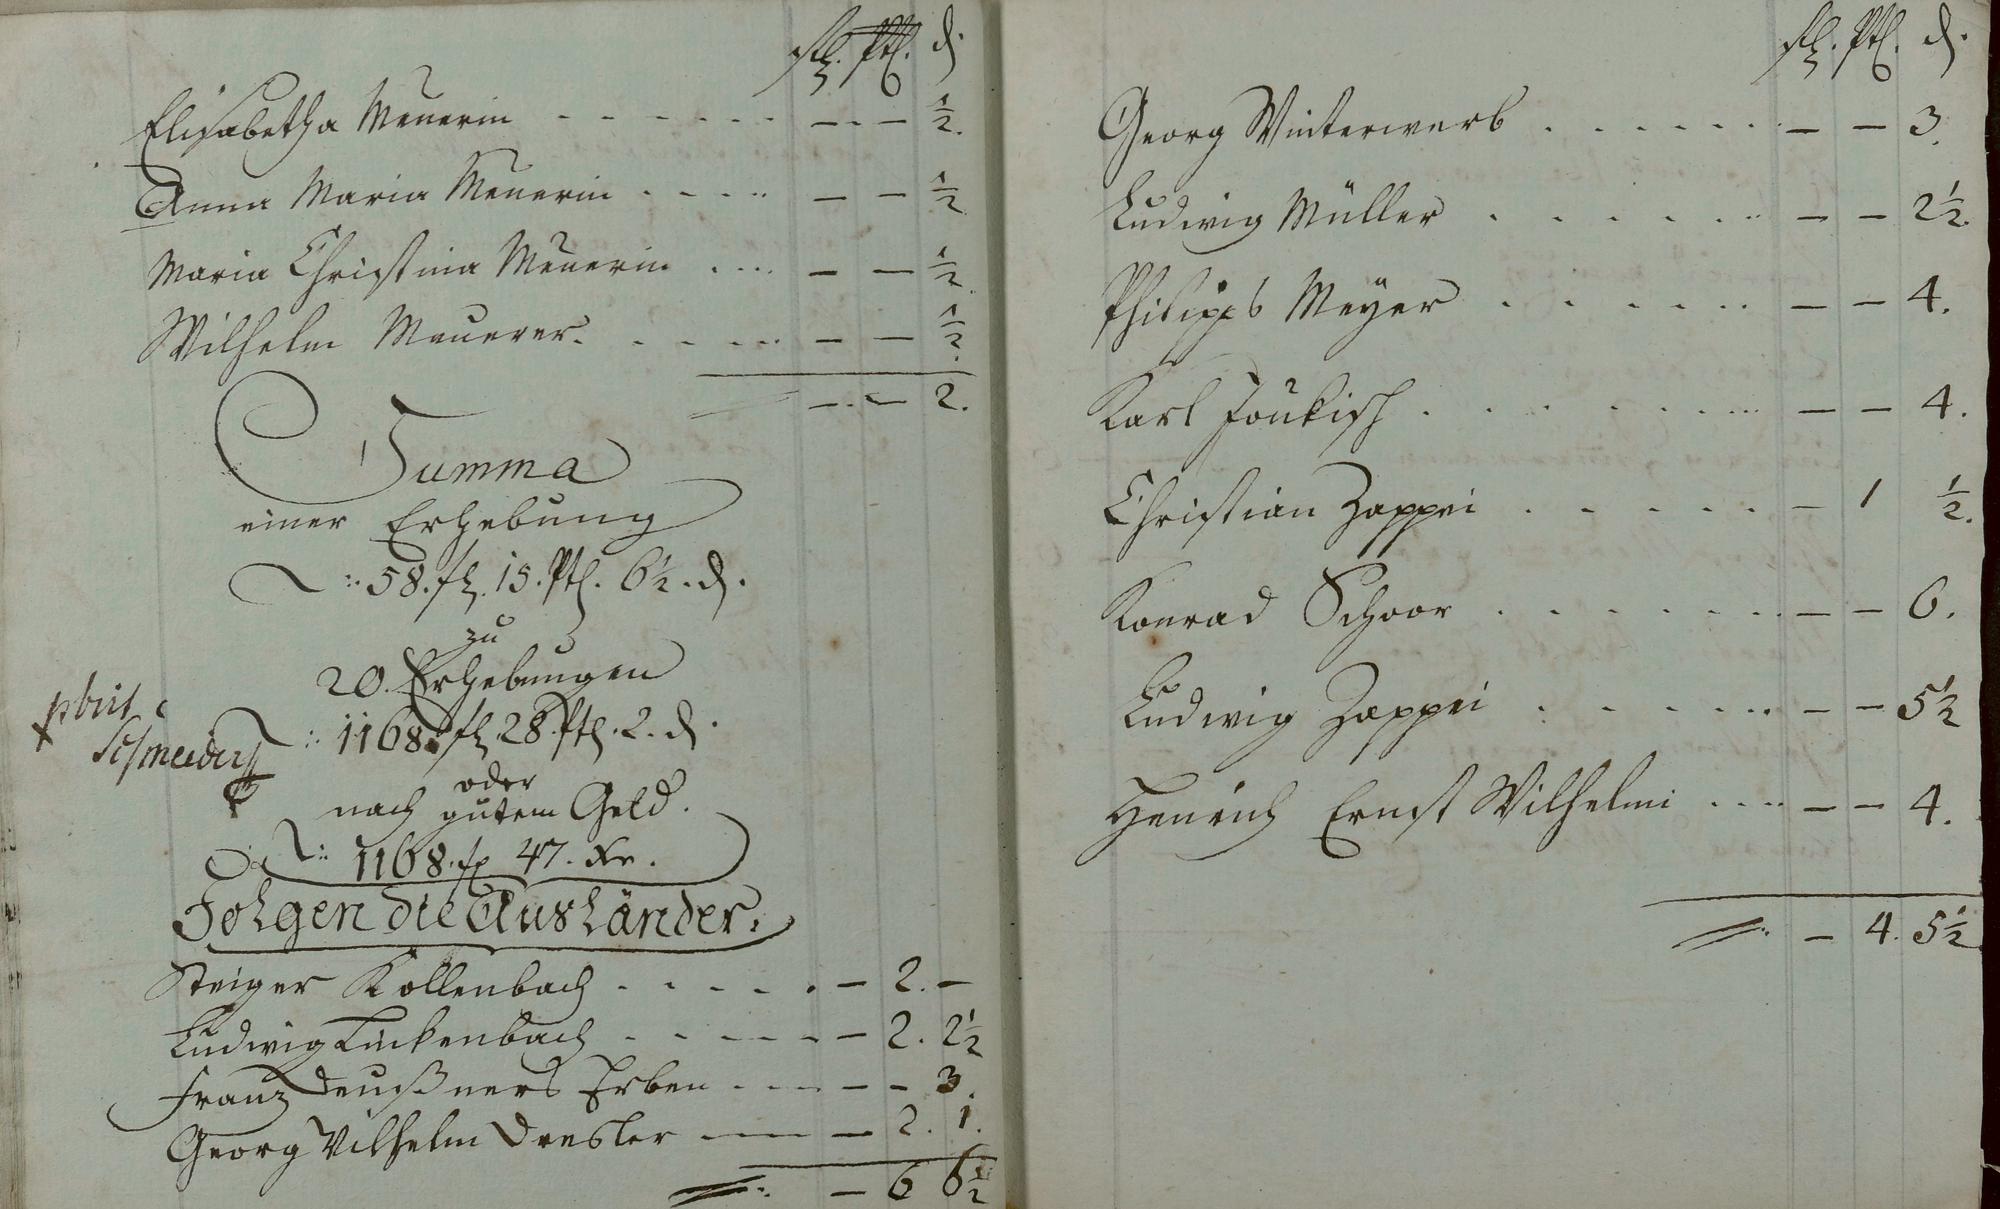 fl. Ptl. d.
Elisabetha Meuerin - - - - - - — — ½.
Anna Maria Meuerin - - - - — — ½
Maria Christina Meuerin . . . . — — ½.
Wilhelm Meuerer. . . . . . — — ½.
— — 2.
Summa
einer Erhebung
58. fl. 15. Ptl. 6½. d.
zu
20. Erhebungen
1168. fl. 28. Ptl. 2. d.
oder
nach gutem Geld.
1168. fl. 47. Xr.
Folgen die Ausländer.
Steiger Kollenbach . . . . . . — 2. —
Ludwig Luckenbach . - - - - - — 2. 2½
Franz Deußners Erben - - - — — 3.
Georg Wilhelm Dresler — — 2. 1.
— 6 6½
Schneider
fl. Ptl. d.
Georg Winterwerb . . . . . . — — 3.
Ludwig Müller . . . . . . — — 2½.
Philipps Meyer . . . . . . — — 4.
Karl . . . . . . . — — 4.
Christian Zappei . . . . . . — 1 ½.
Konrad Schoor . . . . . . . — — 6.
Ludwig Zappei . . . . . . — — 5½
Henrich Ernst Wilhelmi . . . . — — 4.
— 4. 5½